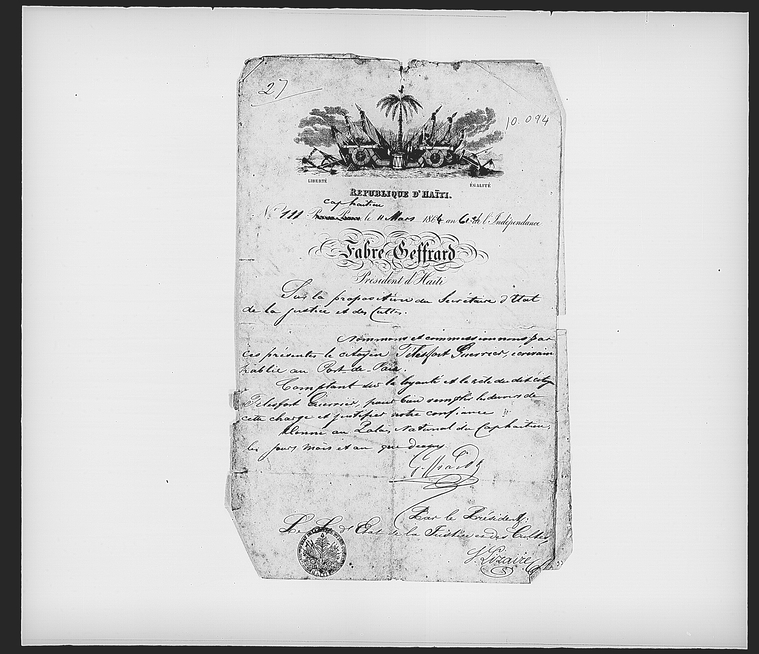 27
10.094
LIBERTÉ
ÉGALITÉ
REPUBLIQUE D'HAÏTI.
cap haitien
N° 111 le 11 Mars 1864 an 61e de l'Indépendance
Fabre Geffrard
Président d'Haïti
Sur la proposition du Secrétaire d'Etat
de la justice et des Cultes.
Nommons et commissionnons par
ces présentes le citoyen Télesfort Guerrier, écrivain
public au Port de Paix.
Comptant sur la loyauté et le zèle du dit
Télesfort Guerrier, pour bien remplir les devoirs de
cette charge et justifier notre confiance
Donné au Palais National du Cap haïtien,
les jours mois et an que dessus
Geffrard
Par le Président,
Le S. d'Etat de la Justice et des Cultes
V. Lizaire